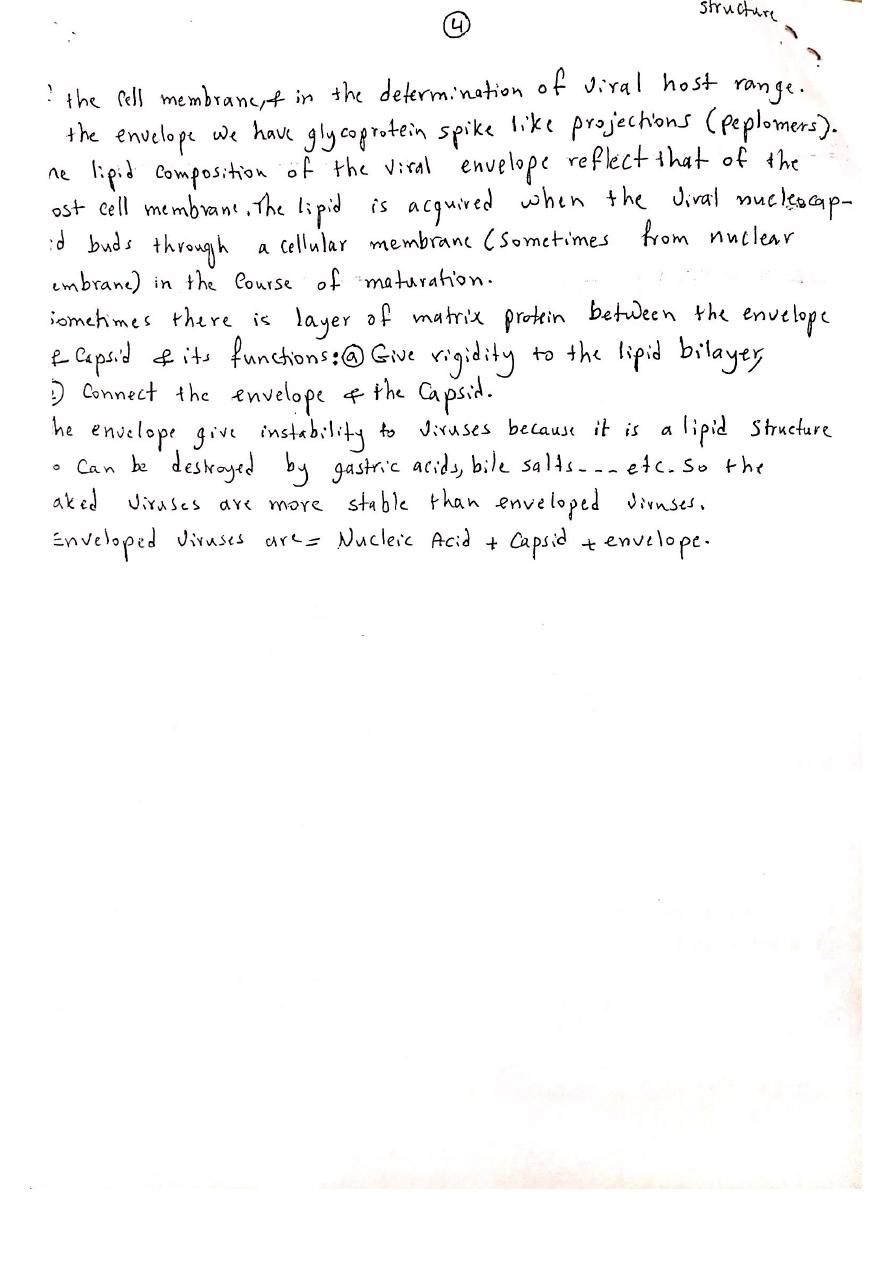 structure
4
the Cell membrane, & in the determination of viral host range.
the envelope we have glycoprotein spike like projections (peplomers).
he lipid composition of the viral envelope reflect that of the
ost cell membrane. The lipid is acquired when the viral nucleocap-
id buds through a cellular membrane (Sometimes from nuclear
embrane) in the Course of maturation.
Sometimes there is layer of matrix protein between the envelope
& Capsid & its functions: @ Give rigidity to the lipid bilayer,
) Connect the envelope & the Capsid.
he envelope give instability to viruses because it is a lipid Structure
o Can be destroyed by gastric acids, bile salts --- etc. So the
aked viruses are more stable than enveloped viruses.
Enveloped viruses are = Nucleic Acid + Capsid + envelope.